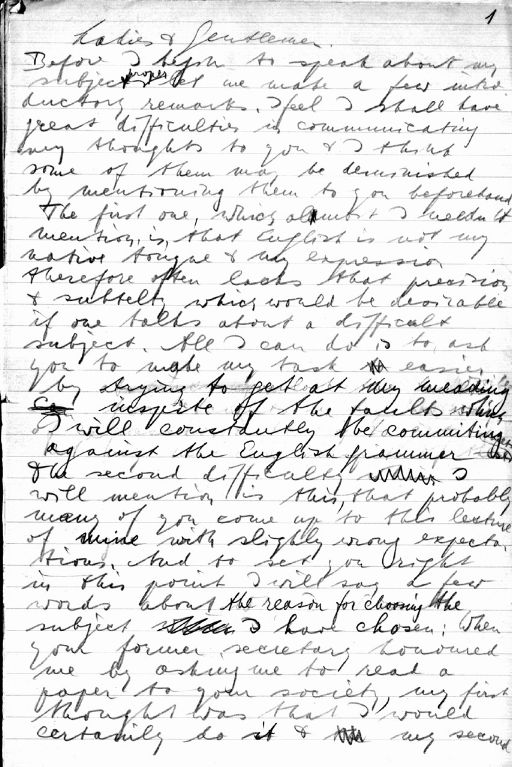 1
Ladies & Gentlemen.
Before I begin to speak about my
subject proper let me make a few intro
ductory remarks. I feel I shall have
great difficulties in communicating
my thoughts to you & I think
some of them may be deminished
by mentioning them to you beforehand
The first one, which almost I needn't
mention, is, that English is not my
native tongue & my expression
therefore often lacks that precision
& subtelty which would be desirable
if one talks about a difficult
subject. All I can do is to ask
you to make my task easier
by trying to get at my meaning
inspite of the faults which
I will constantly be commiting
against the English grammar
The second difficulty I
will mention is this, that probably
many of you come up to this lecture
of mine with slighly wrong expecta
tions. And to set you right
in this point I will say a few
words about the reason for choosing the
subject I have chosen: When
your former secretary honoured
me by asking me to read a
paper to your society, my first
thought was that I would
certainly do it & my second